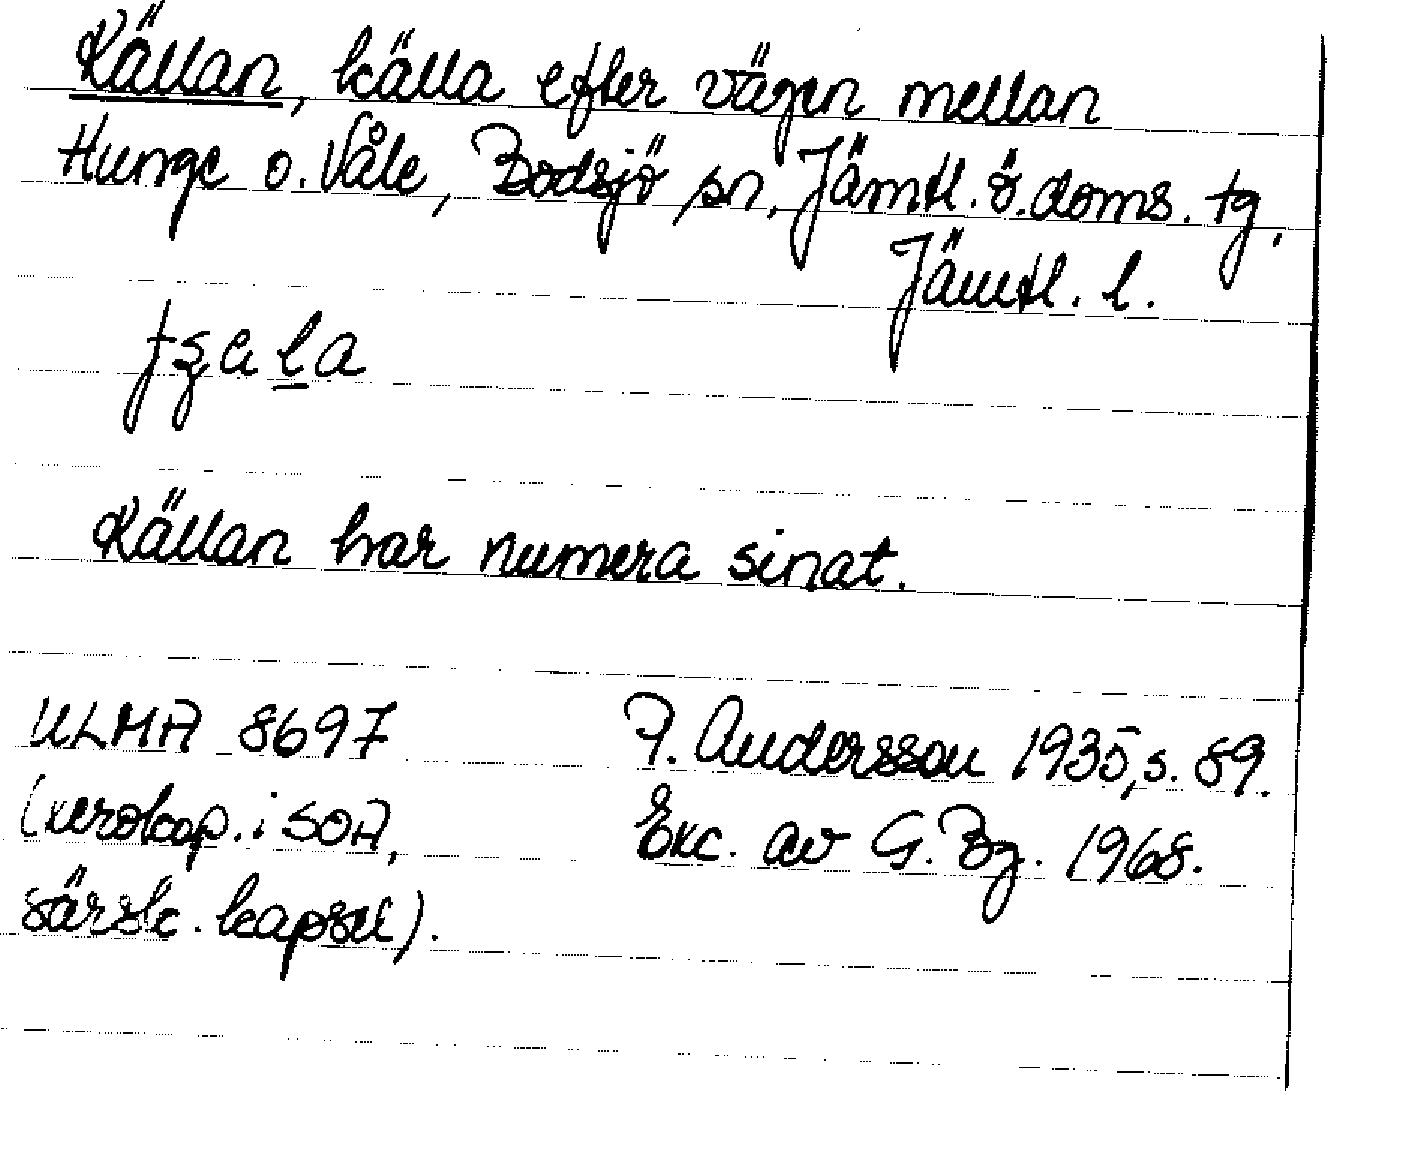 Källan, källa efter vägen mellan
Hunge o. Våle, Bodsjö sn, Jämtl. ö. doms. tg,
Jämtl. l.
Källan har numera sinat.
ULMA 8697
(xerokop. i SOA,
särsk. kapsel).
P. Andersson 1935, s. 89.
Exc. av G. Bg. 1968.